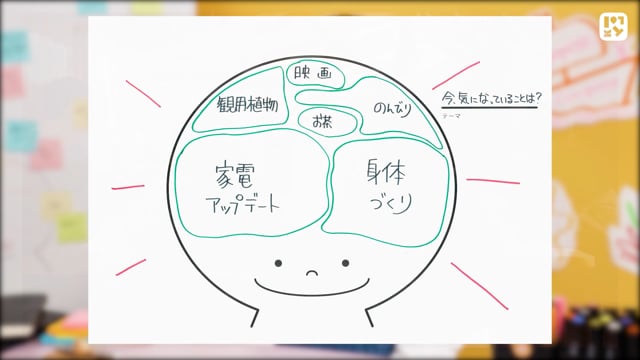 映画
観用植物
のんびり
お茶
今、気になっていることは?
テーマ
家電
アップデート
身体
づくり